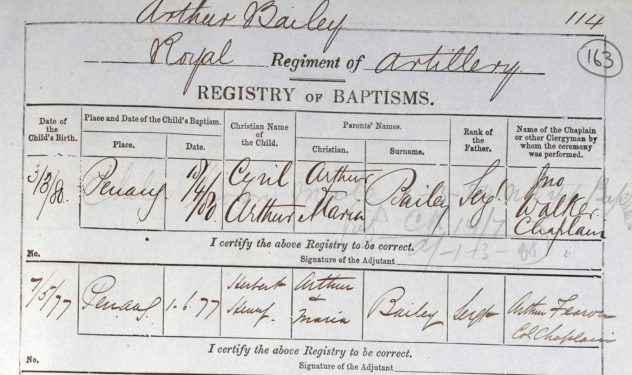 Arthur Bailey
114
Royal Regiment of Artillery
163
REGISTRY OF BAPTISMS.
Date of the Child's Birth.
Place and Date of the Child's Baptism.
Place. Date.
Christian Name of the Child.
Parents' Names.
Christian. Surname.
Rank of the Father.
Name of the Chaplain or other Clergyman by whom the ceremony was performed.
Penang
Cyril Arthur
Arthur & Maria
Bailey
Sergt.
Jno Walker Chaplain
I certify the above Registry to be correct.
No.
Signature of the Adjutant
7/5/77 Penang 1.6.77
Herbert
Arthur & Maria
Bailey
Sergt
Arthur Fearon
Col Chaplain
I certify the above Registry to be correct.
No.
Signature of the Adjutant